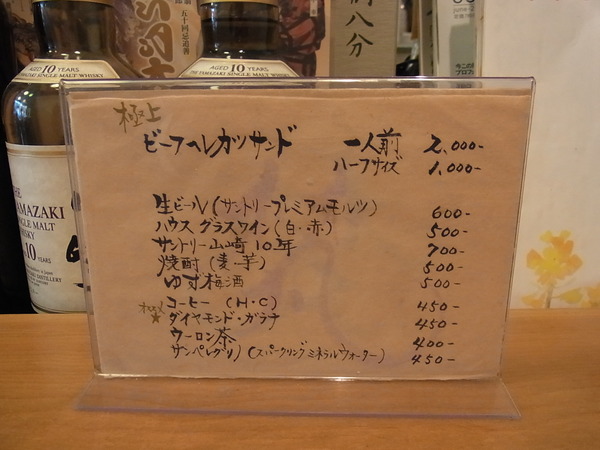 AGED 10 YEARS
THE YAMAZAKI SINGLE MALT WHISKY
AGED 10 YEARS
THE YAMAZAKI SINGLE MALT WHISKY
五十同忌追善
八分
THE
YAMAZAKI
SINGLE MALT
WHISKY
10
YEARS
極上
ビーフヘレカツサンド 一人前 2,000-
ハーフサイズ 1,000-
生ビール(サントリープレミアムモルツ) 600-
ハウスグラスワイン(白・赤) 500-
サントリー山崎10年 700-
焼酎(麦・芋) 500-
ゆず梅酒 500-
コーヒー(H・C) 450-
オススメ★ダイヤモンド・ガラナ 450-
ウーロン茶 400-
サンペレグリノ(スパークリングミネラルウォーター) 450-